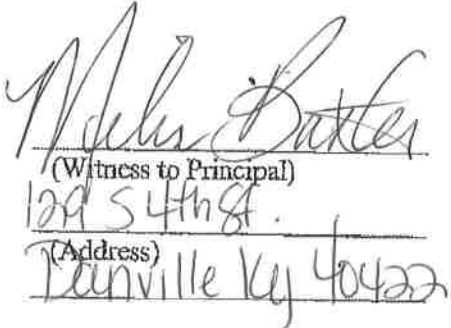 Myles Baxter
(Witness to Principal)
129 S 4th St.
(Address)
Danville Ky 40422